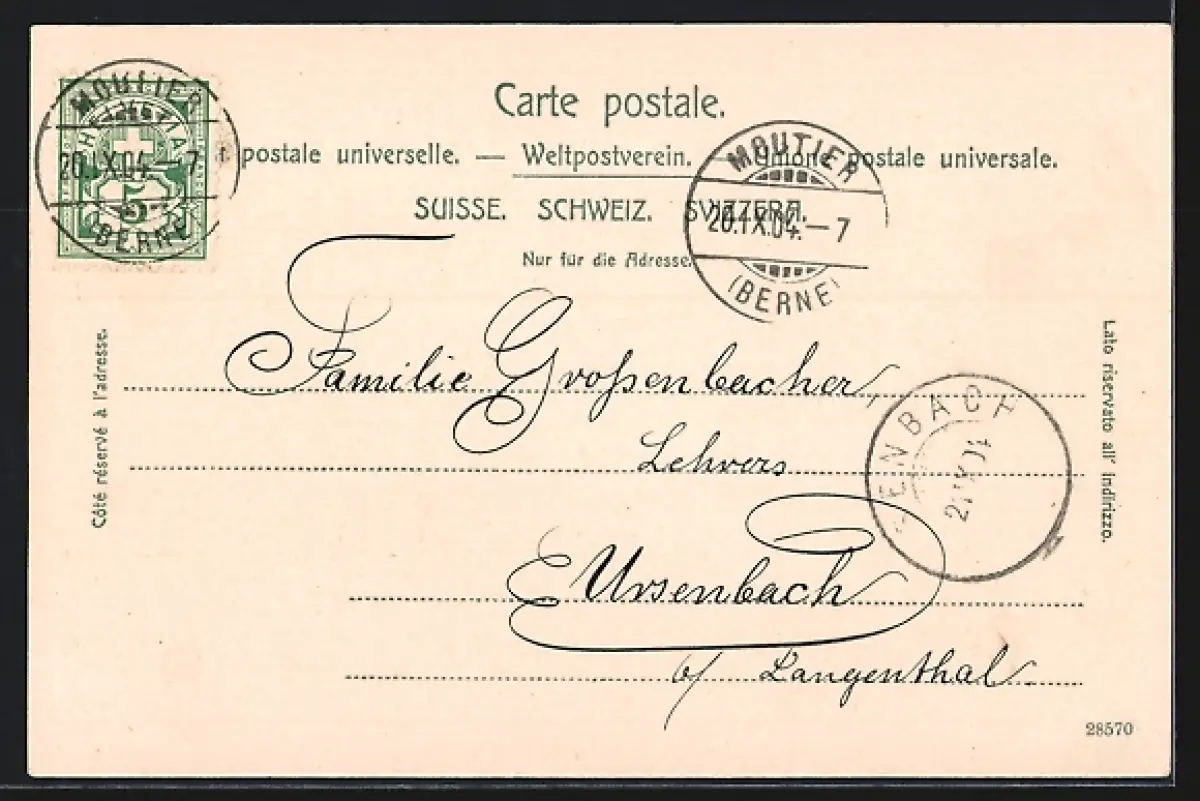 MOUTIER
HELVETIA
20.IX.04.–7
5
(BERNE)
Carte postale.
postale universelle. — Weltpostverein. — Unione postale universale.
SUISSE. SCHWEIZ. SVIZZERA.
Nur für die Adresse.
MOUTIER
20.IX.04.–7
(BERNE)
Côté réservé à l'adresse.
Lato riservato all' indirizzo.
Familie Großenbacher,
Lehrers
ENBACH
21.IX.04
Ursenbach
b/ Langenthal.
28570